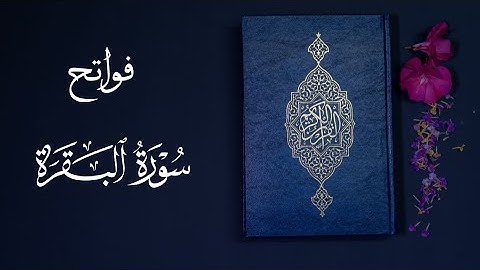 فواتح
سُورَةُ ٱلبَقَرَة
القرآن الكريم